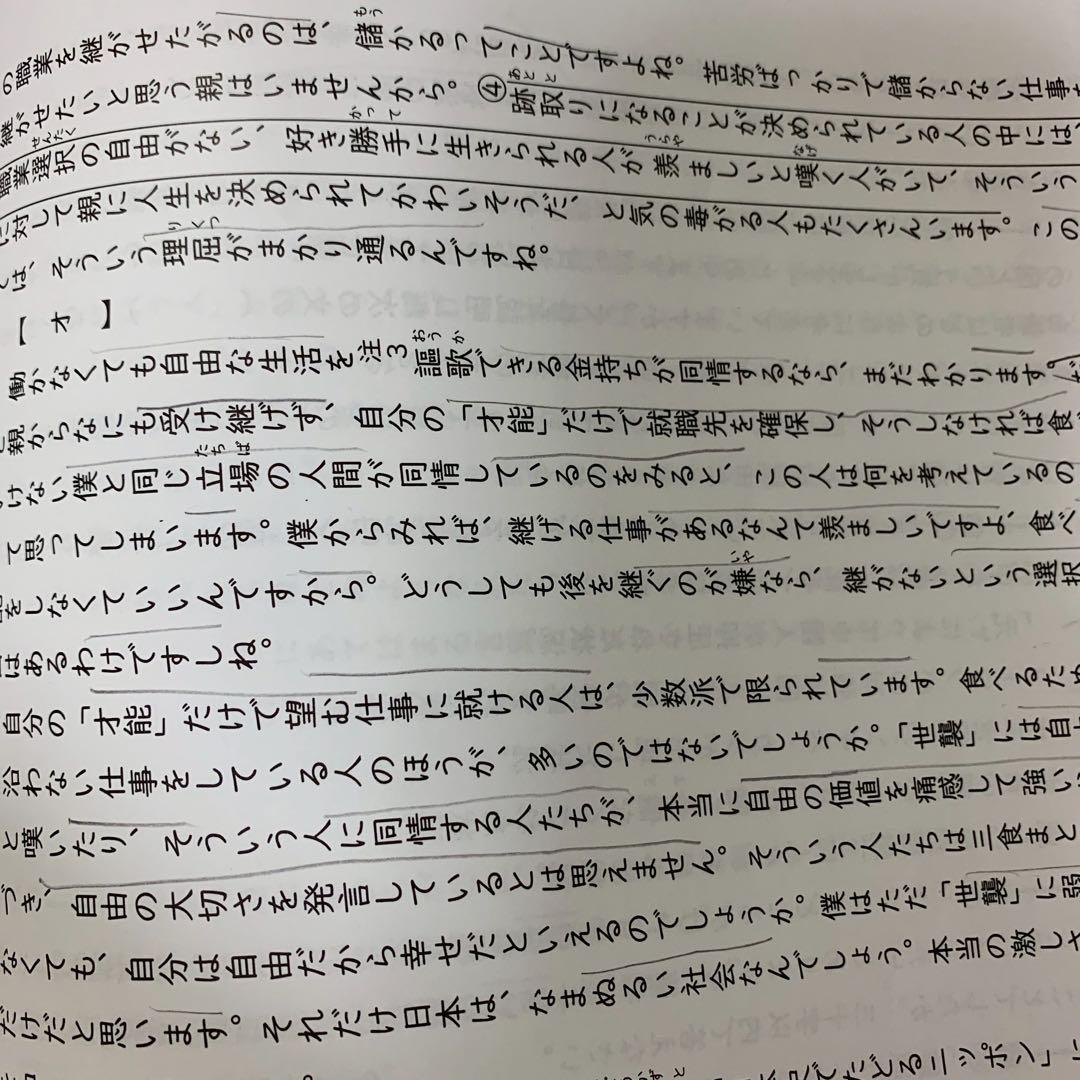 の職業を継がせたがるのは、儲かるってことですよね。苦労ばっかりで儲からない仕事を
継がせたいと思う親はいませんから。④跡取りになることが決められている人の中には、
職業選択の自由がない、好き勝手に生きられる人が羨ましいと嘆く人がいて、そういう
に対して親に人生を決められてかわいそうだ、と気の毒がる人もたくさんいます。この
では、そういう理屈がまかり通るんですね。
【オ】
働かなくても自由な生活を注3謳歌できる金持ちが同情するなら、まだわかります。だ
と親からなにも受け継げず、自分の「才能」だけで就職先を確保し、そうしなければ食
けない僕と同じ立場の人間が同情しているのをみると、この人は何を考えているの
て思ってしまいます。僕からみれば、継げる仕事があるなんて羨ましいですよ、食べ
をしなくていいんですから。どうしても後を継ぐのが嫌なら、継がないという選択
はあるわけですしね。
自分の「才能」だけで望む仕事に就ける人は、少数派で限られています。食べるため
沿わない仕事をしている人のほうが、多いのではないでしょうか。「世襲」には自
と嘆いたり、そういう人に同情する人たちが、本当に自由の価値を痛感して強い
づき、自由の大切さを発言しているとは思えません。そういう人たちは三食まと
なくても、自分は自由だから幸せだといえるのでしょうか。僕はただ「世襲」に弱
だけだと思います。それだけ日本は、なまぬるい社会なんでしょう。本当の激し
でたどるニッポン」に